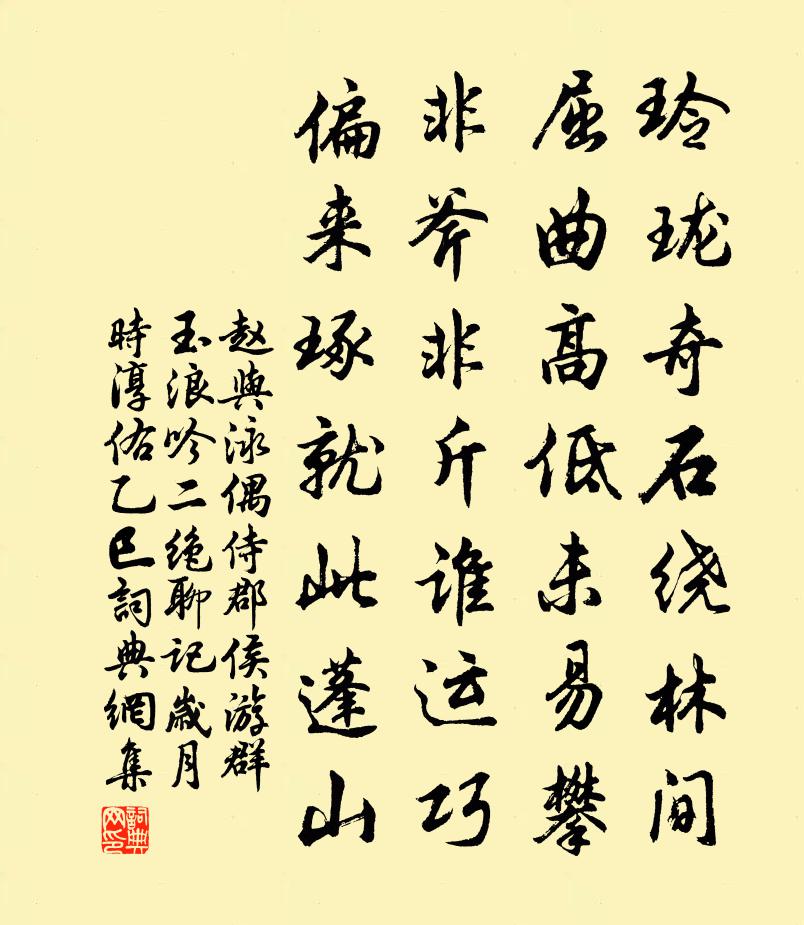 玲珑奇石绕林间
屈曲高低未易攀
非斧非斤谁运巧
偏来琢就此蓬山
赵与泳偶侍郡侯游群
玉浪吟二绝聊记岁月
時淳佑乙巳詞典網集
詞典
网印